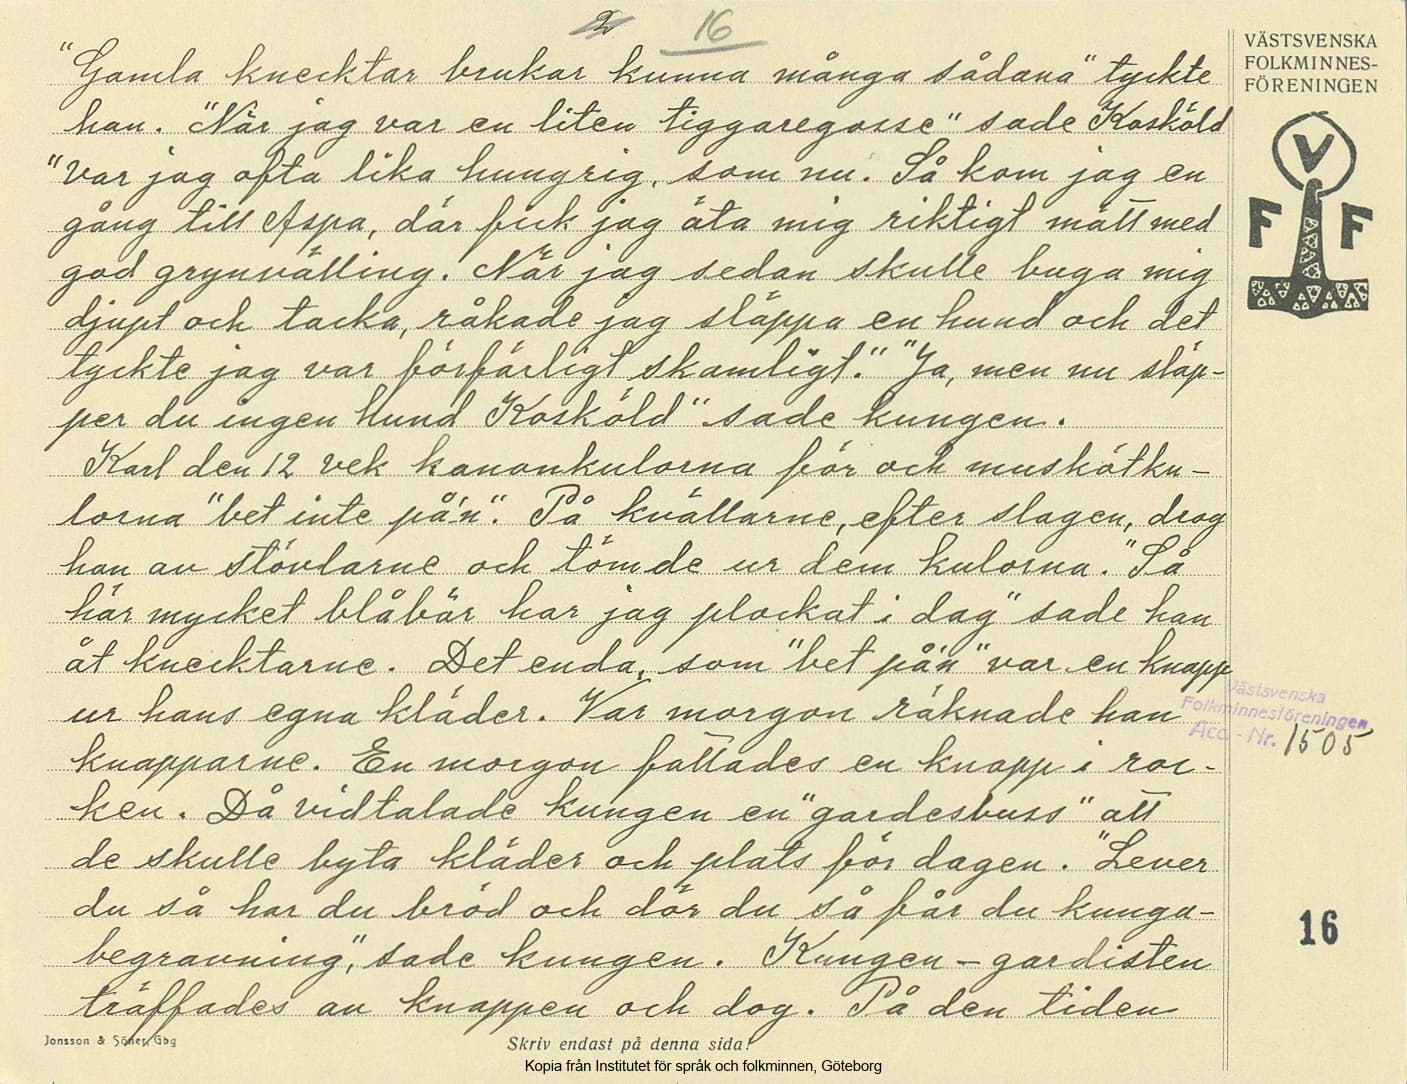 2 16
"Gamla knecktar brukar kunna många sådana" tyckte
han. "När jag var en liten tiggaregosse" sade Kosköld
"var jag ofta lika hungrig, som nu. Så kom jag en
gång till Aspa, där fick jag äta mig riktigt mätt med
god grynvälling. När jag sedan skulle buga mig
djupt och tacka, råkade jag släppa en hund och det
tyckte jag var förfärligt skamligt." "Ja, men nu släp-
per du ingen hund Kosköld" sade kungen.
Karl den 12 vek kanonkulorna för och muskötku-
lorna "bet inte på'n". På kvällarne, efter slagen, drog
han av stövlarne och tömde ur dem kulorna. "Så
här mycket blåbär har jag plockat i dag" sade han
åt knecktarne. Det enda, som "bet på'n" var en knapp
ur hans egna kläder. Var morgon räknade han
knapparne. En morgon fattades en knapp i roc-
ken. Då vidtalade kungen en "gardesbuss" att
de skulle byta kläder och plats för dagen. "Lever
du så har du bröd och dör du så får du kunga-
begravning", sade kungen. Kungen - gardisten
träffades av knappen och dog. På den tiden
VÄSTSVENSKA
FOLKMINNES-
FÖRENINGEN
V
F F
Västsvenska
Folkminnesföreningen
Acc. - Nr. 1505
16
Jonsson & Söner, Gbg
Skriv endast på denna sida!
Kopia från Institutet för språk och folkminnen, Göteborg